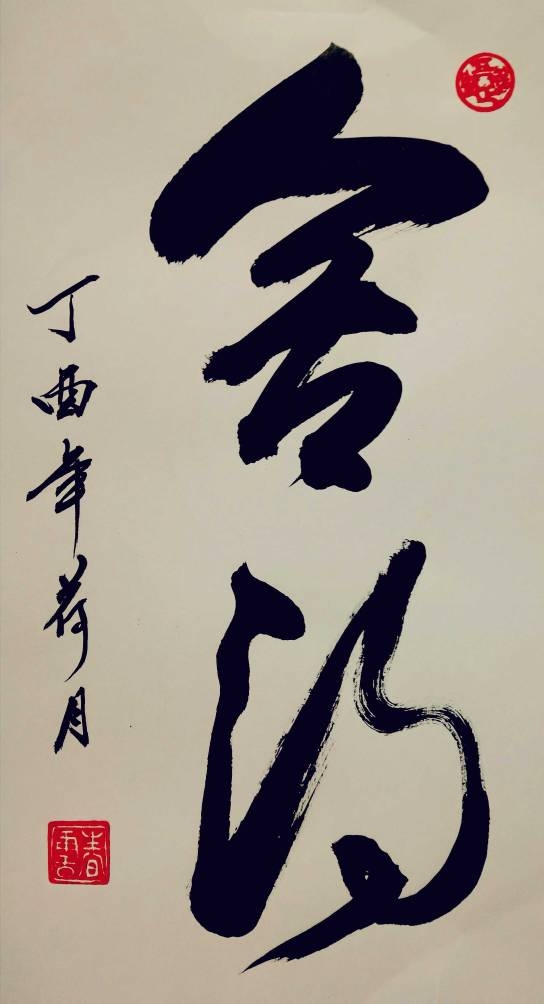 舍得
丁酉年荷月